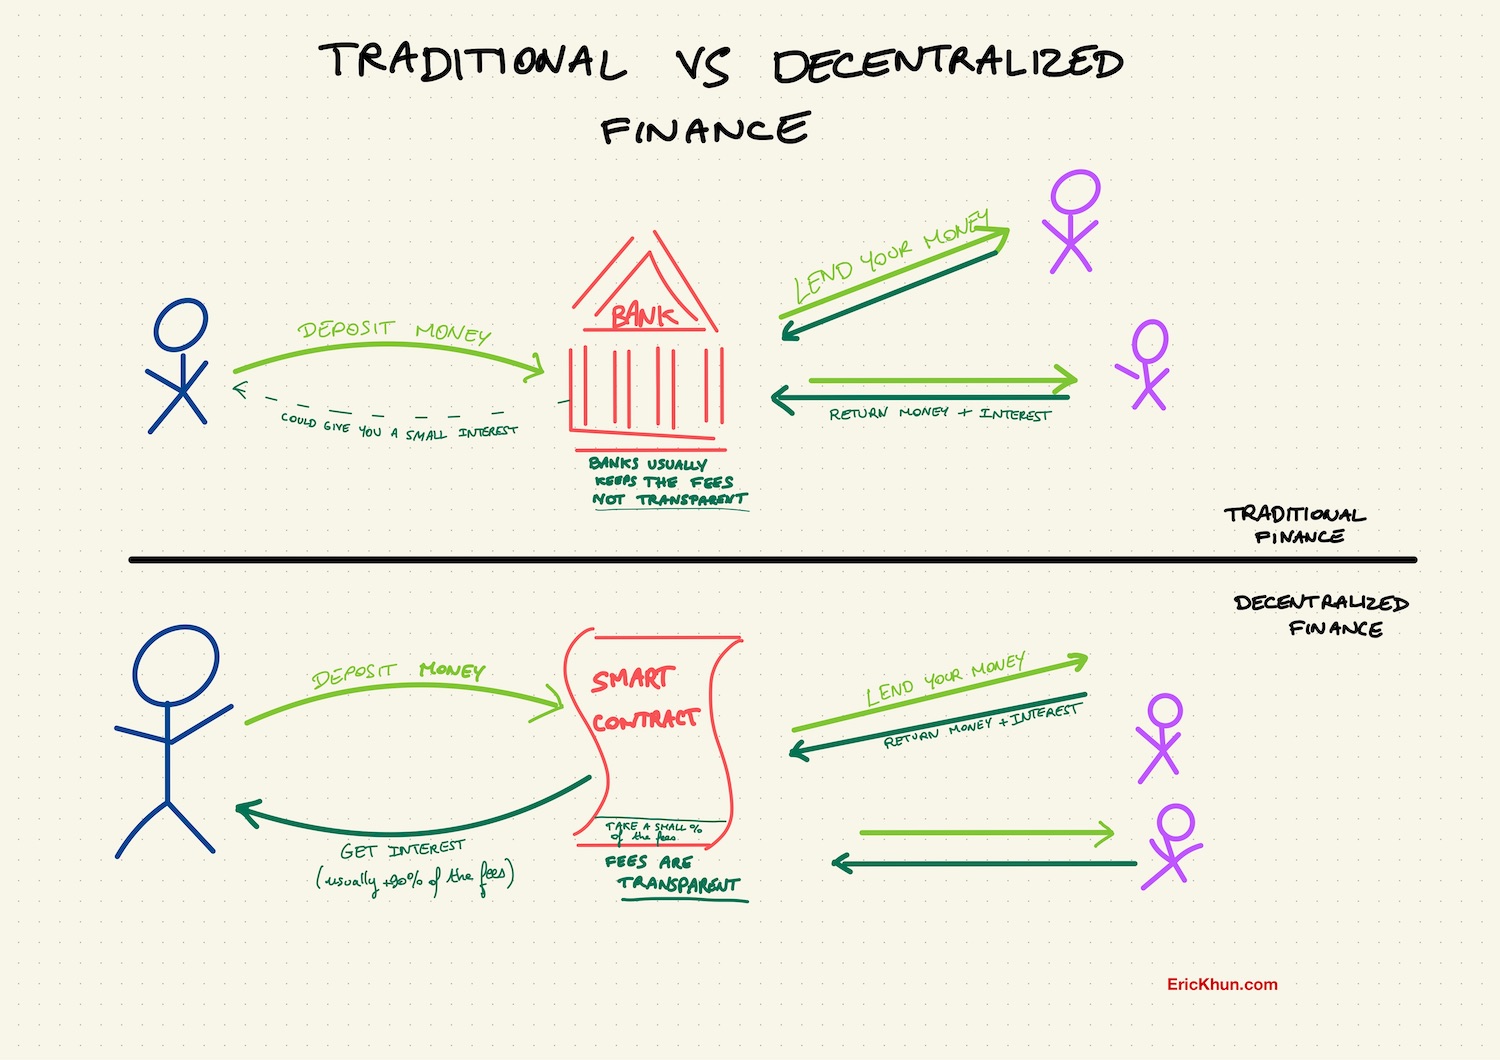 TRADITIONAL VS DECENTRALIZED
FINANCE
DEPOSIT MONEY
COULD GIVE YOU A SMALL INTEREST
BANK
BANKS USUALLY
KEEPS THE FEES
NOT TRANSPARENT
LEND YOUR MONEY
RETURN MONEY + INTEREST
TRADITIONAL
FINANCE
DECENTRALIZED
FINANCE
DEPOSIT MONEY
GET INTEREST
(usually +90% of the fees)
SMART
CONTRACT
TAKE A SMALL %
of the fees.
FEES ARE
TRANSPARENT
LEND YOUR MONEY
RETURN MONEY + INTEREST
EricKhun.com